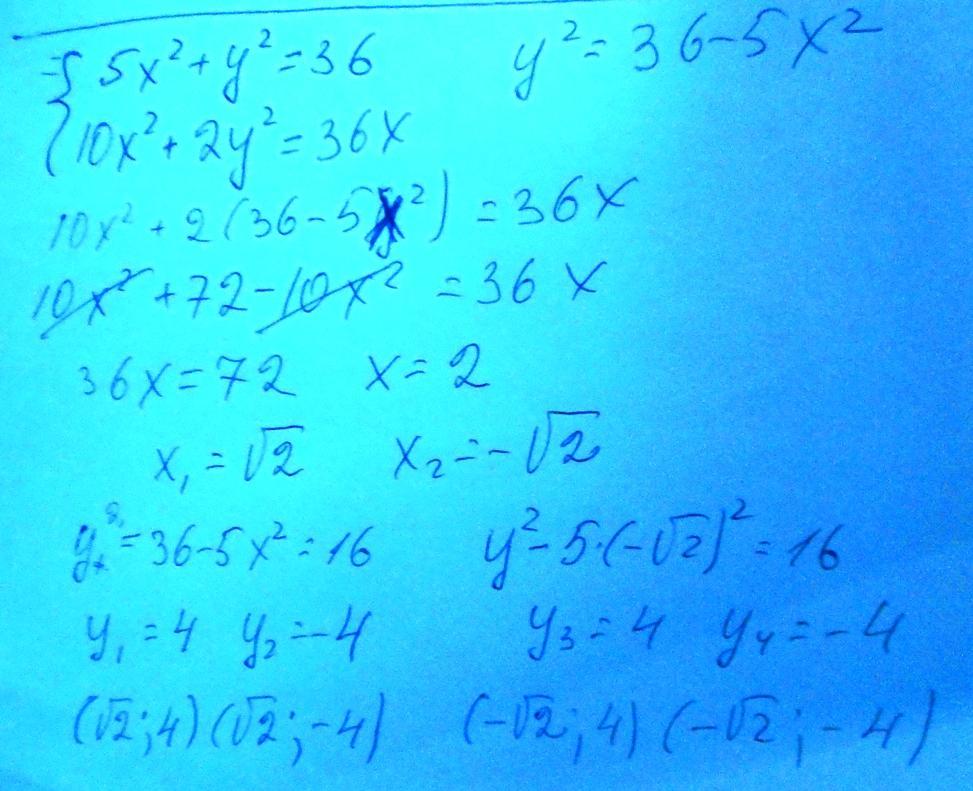 { 5x² + y² = 36 y² = 36 - 5x²
10x² + 2y² = 36x
10x² + 2(36 - 5x²) = 36x
10x² + 72 - 10x² = 36x
36x = 72 x = 2
x₁ = √2 x₂ = -√2
y² = 36 - 5x² = 16 y² - 5·(-√2)² = 16
y₁ = 4 y₂ = -4 y₃ = 4 y₄ = -4
(√2; 4) (√2; -4) (-√2; 4) (-√2; -4)